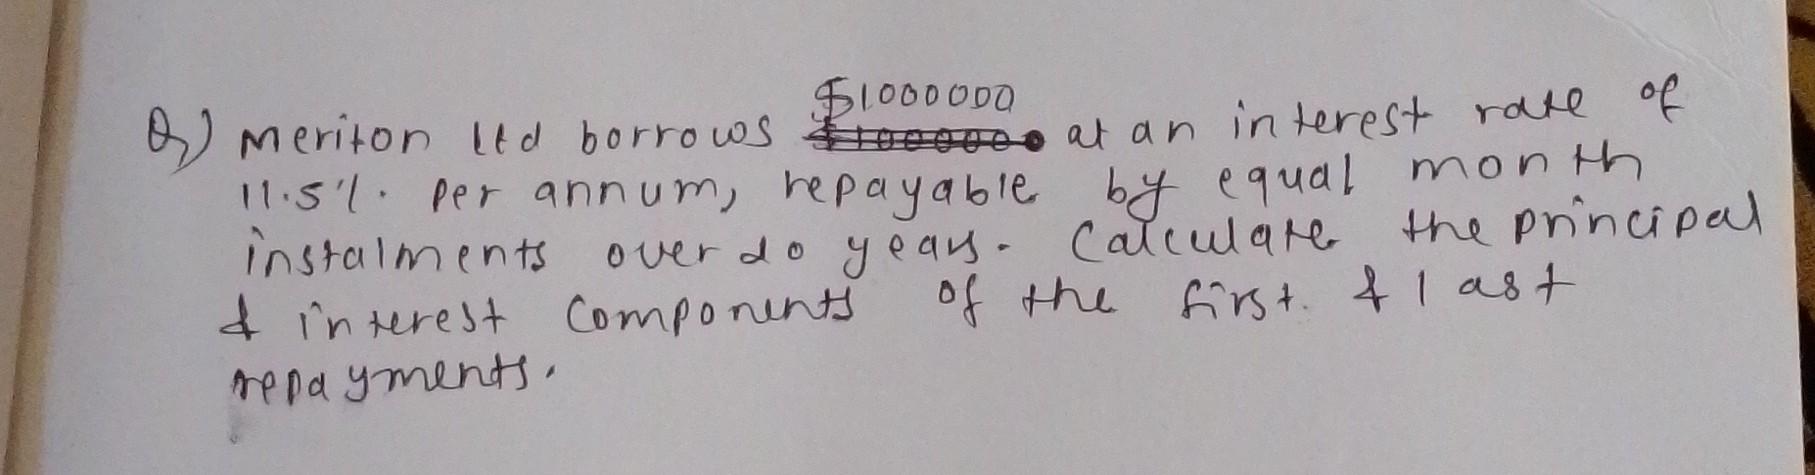 Q) Meriton ltd borrows $1000000 at an interest rate of
11.5%. per annum, repayable by equal month
instalments over 20 years. Calculate the principal
& interest components of the first. & last
repayments.